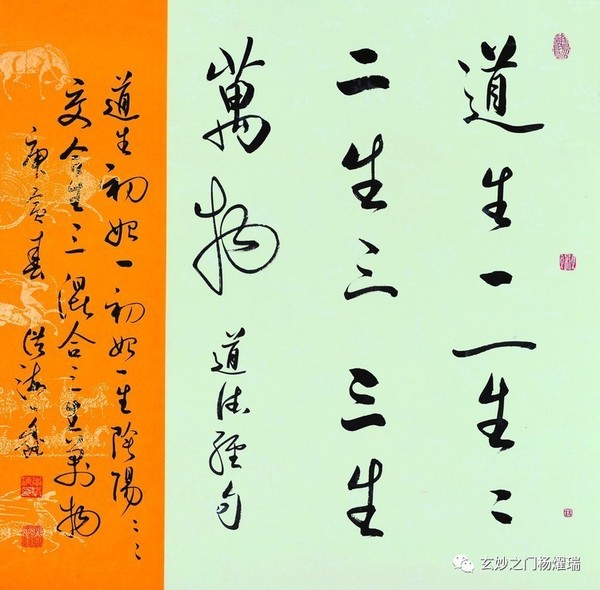 道生一一生二
二生三三生
萬物
道德經句
道生初始一初始一生陰陽二二
交合生三混合三生萬物
庚寅春洪海
玄妙之门杨燿瑞